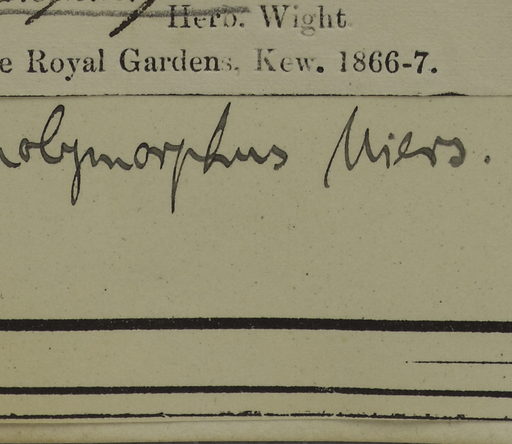 Herb. Wight
e Royal Gardens, Kew. 1866-7.
polymorphus Miers.